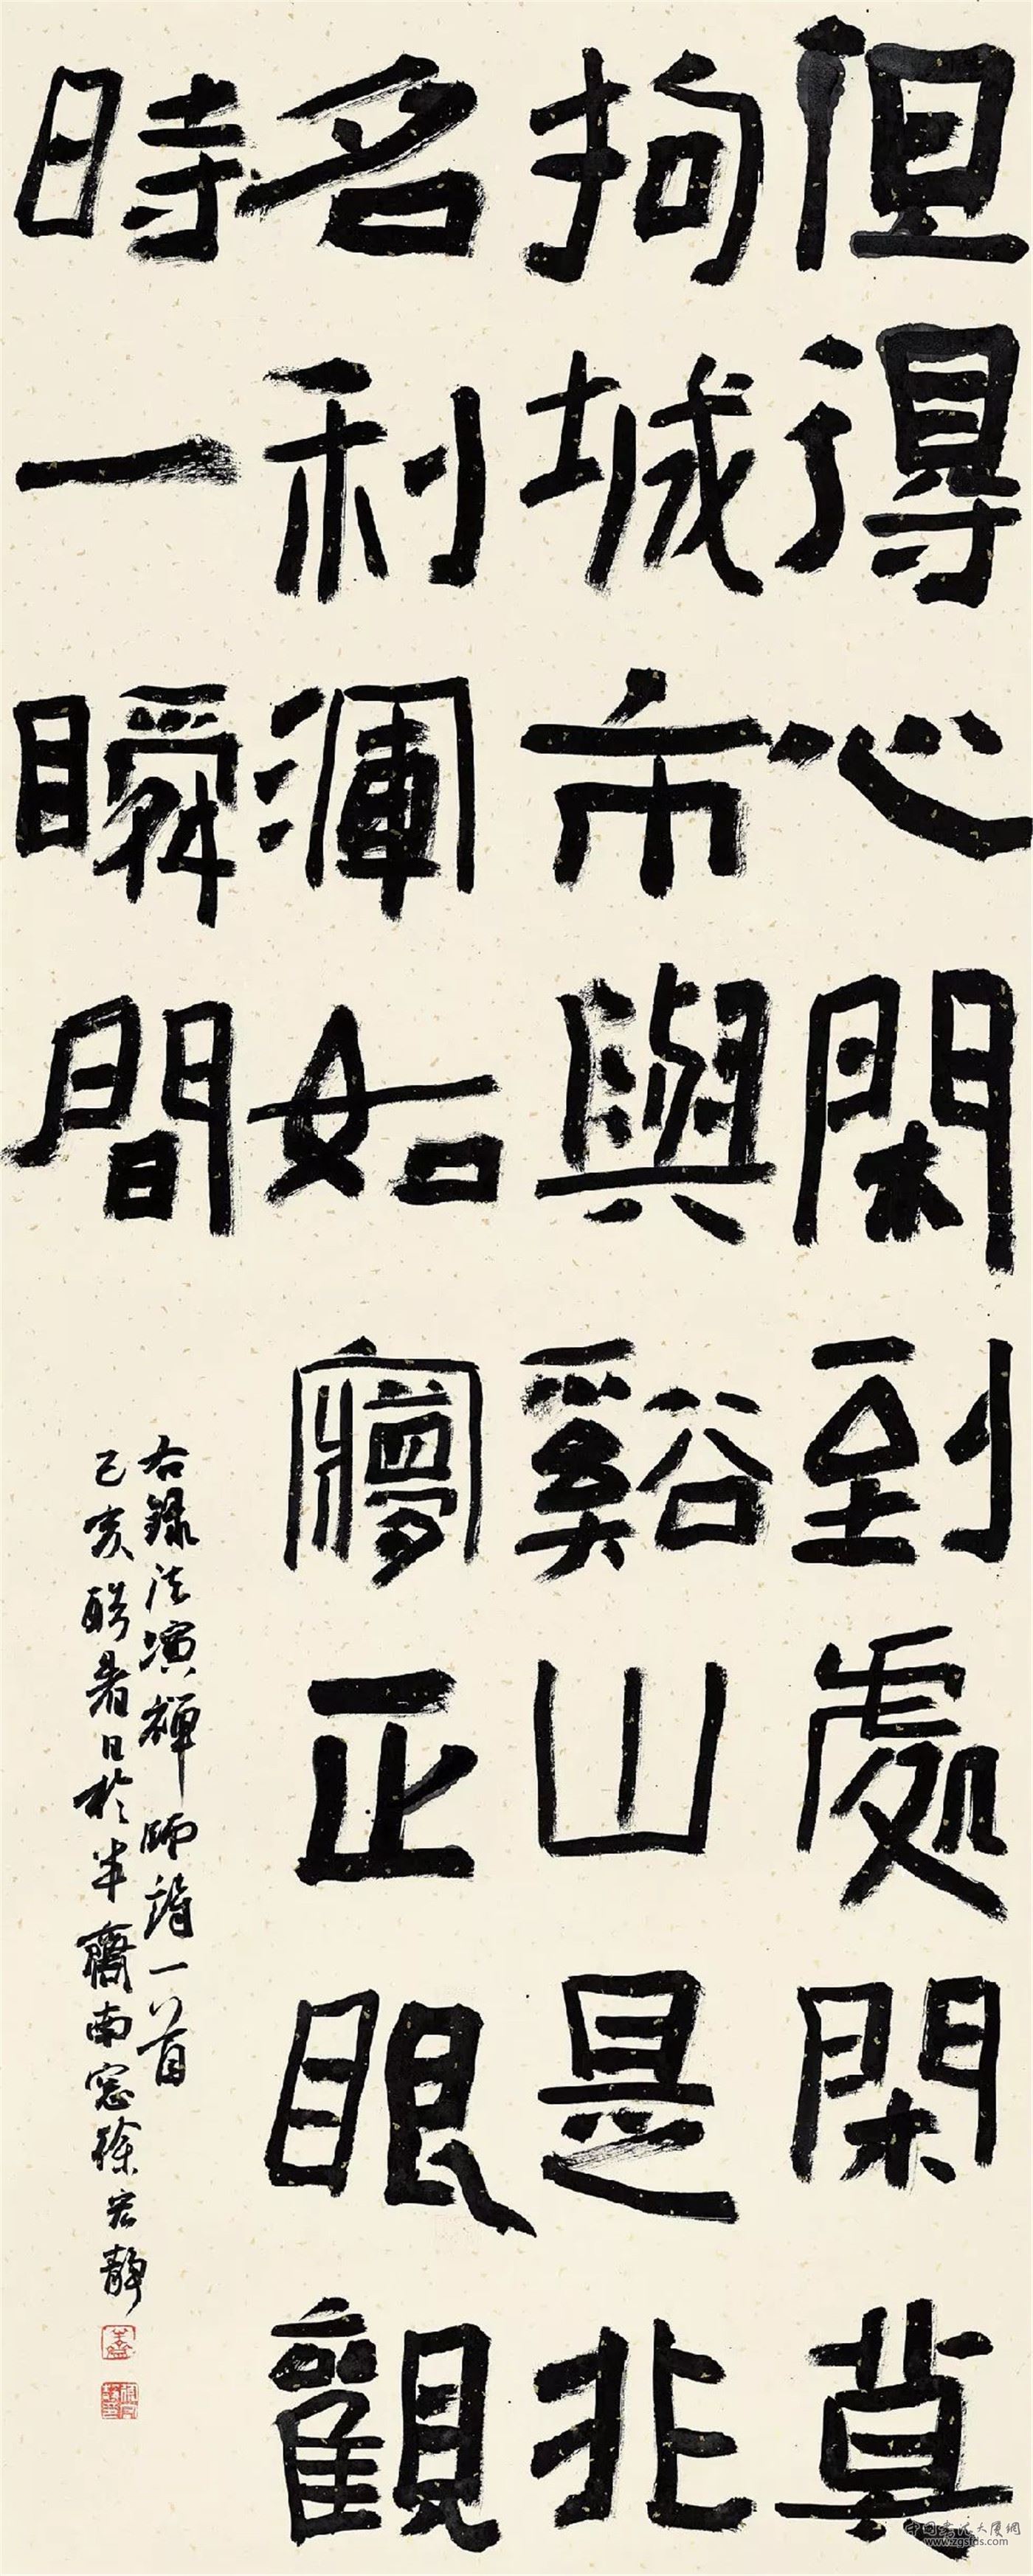 但得心閑到處閑莫
拘城市與谿山是非
名利渾如夢正眼觀
時一瞬間
右錄法演禪師詩一首
己亥酷暑日於半齋南窓徐宏靜
中国书法大厦網
www.zgsfds.com